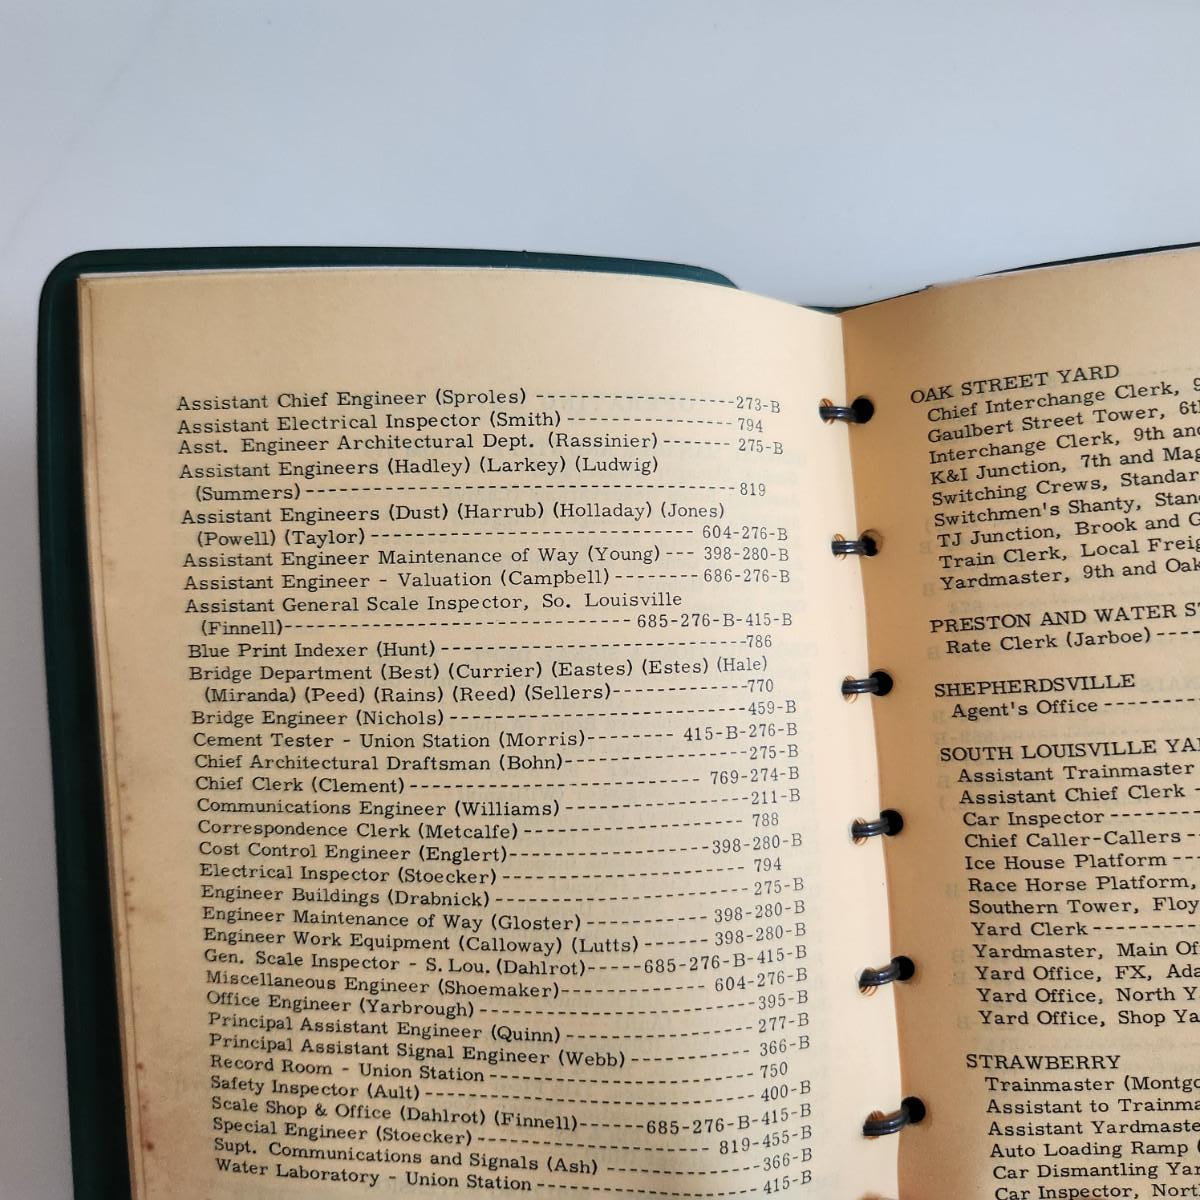 Assistant Chief Engineer (Sproles) --------------------273-B
Assistant Electrical Inspector (Smith) ----------------- 794
Asst. Engineer Architectural Dept. (Rassinier) ------- 275-B
Assistant Engineers (Hadley) (Larkey) (Ludwig)
(Summers)-------------------------------------------- 819
Assistant Engineers (Dust) (Harrub) (Holladay) (Jones)
(Powell) (Taylor)--------------------------------- 604-276-B
Assistant Engineer Maintenance of Way (Young) --- 398-280-B
Assistant Engineer - Valuation (Campbell)-------- 686-276-B
Assistant General Scale Inspector, So. Louisville
(Finnell)----------------------------------- 685-276-B-415-B
Blue Print Indexer (Hunt)-------------------------------786
Bridge Department (Best) (Currier) (Eastes) (Estes) (Hale)
(Miranda) (Peed) (Rains) (Reed) (Sellers)-------------770
Bridge Engineer (Nichols)------------------------------459-B
Cement Tester - Union Station (Morris)-------- 415-B-276-B
Chief Architectural Draftsman (Bohn)------------------275-B
Chief Clerk (Clement)----------------------------- 769-274-B
Communications Engineer (Williams)------------------211-B
Correspondence Clerk (Metcalfe)---------------------- 788
Cost Control Engineer (Englert)--------------------398-280-B
Electrical Inspector (Stoecker)------------------------ 794
Engineer Buildings (Drabnick)------------------------ 275-B
Engineer Maintenance of Way (Gloster)----------- 398-280-B
Engineer Work Equipment (Calloway) (Lutts)------ 398-280-B
Gen. Scale Inspector - S. Lou. (Dahlrot)-----685-276-B-415-B
Miscellaneous Engineer (Shoemaker)------------- 604-276-B
Office Engineer (Yarbrough)---------------------------395-B
Principal Assistant Engineer (Quinn)------------------ 277-B
Principal Assistant Signal Engineer (Webb)----------- 366-B
Record Room - Union Station-------------------------- 750
Safety Inspector (Ault)------------------------------- 400-B
Scale Shop & Office (Dahlrot) (Finnell)------685-276-B-415-B
Special Engineer (Stoecker)---------------------- 819-455-B
Supt. Communications and Signals (Ash)---------------366-B
Water Laboratory - Union Station--------------------- 415-B
OAK STREET YARD
Chief Interchange Clerk, 9
Gaulbert Street Tower, 6th
Interchange Clerk, 9th and
K&I Junction, 7th and Mag
Switching Crews, Standar
Switchmen's Shanty, Stan
TJ Junction, Brook and G
Train Clerk, Local Freig
Yardmaster, 9th and Oak
PRESTON AND WATER ST
Rate Clerk (Jarboe)----
SHEPHERDSVILLE
Agent's Office ---------
SOUTH LOUISVILLE YA
Assistant Trainmaster
Assistant Chief Clerk -
Car Inspector ---------
Chief Caller-Callers -
Ice House Platform ---
Race Horse Platform,
Southern Tower, Floy
Yard Clerk-----------
Yardmaster, Main Of
Yard Office, FX, Ada
Yard Office, North Y
Yard Office, Shop Ya
STRAWBERRY
Trainmaster (Montgo
Assistant to Trainma
Assistant Yardmaste
Auto Loading Ramp (
Car Dismantling Yar
Car Inspector, Nort